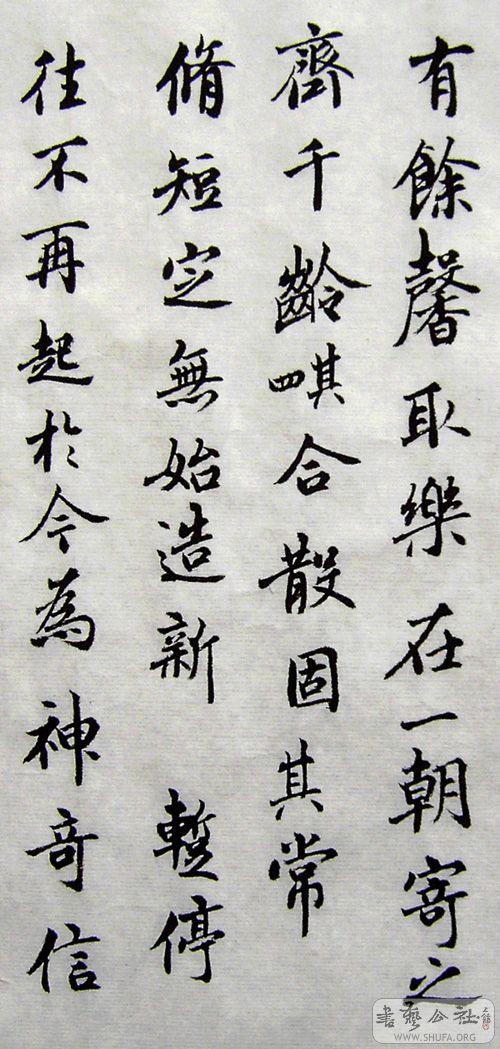 有餘馨取樂在一朝寄之
齊千齡合散固其常
脩短定無始造新 蹔停
往不再起於今為神奇信
書藝公社
WWW.SHUFA.ORG